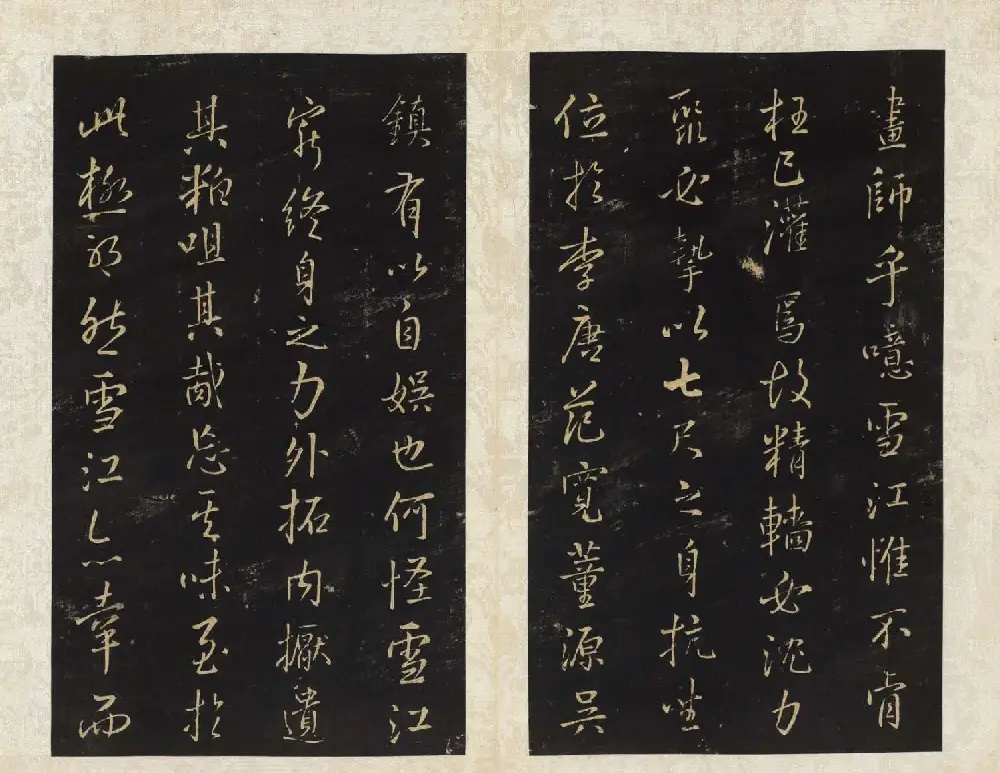 畫師乎噫雪江惟不肯
枉己灌焉故精轖必沈力
聚必摯以七尺之身抗坐
位於李唐范寬董源吳
鎮有以自娛也何怪雪江
窮終身之力外拓內擫遺
其粗咀其胾忘其味至於
此極耶然雪江亦幸而